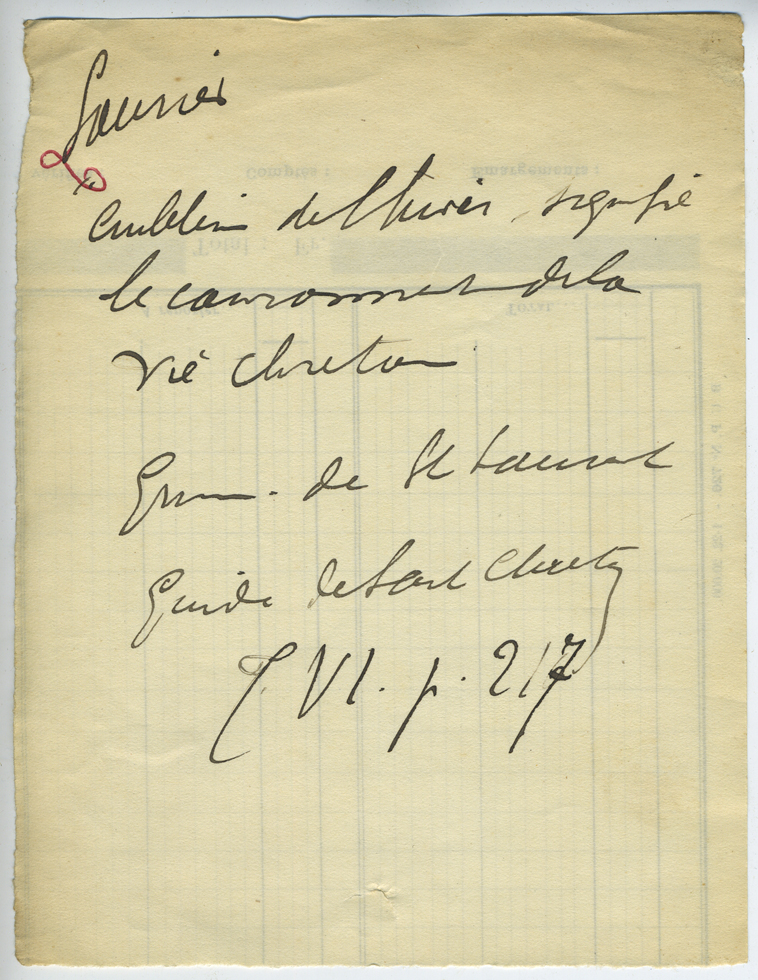 Laurier
emblème de l'hiver, signifie
le couronnement de la
vie chrétien
Grim. de St Laurent
Guide de l'art chrétien
T. VI. p. 217